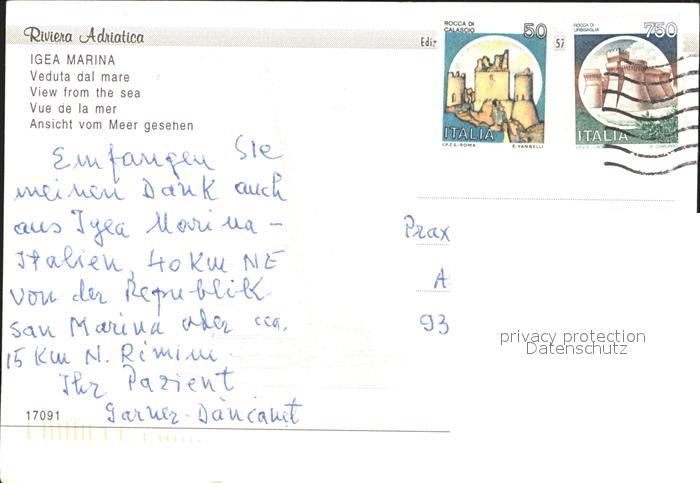 Riviera Adriatica
IGEA MARINA
Veduta dal mare
View from the sea
Vue de la mer
Ansicht vom Meer gesehen
Ediz
57
ROCCA DI
CALASCIO
50
ITALIA
I.P.Z.S.-ROMA E. VANGELLI
ROCCA DI
URBISAGLIA
750
ITALIA
Empfangen Sie
meinen Dank auch
aus Igea Marina -
Italien, 40 Km NE
von der Republik
San Marina oder cca.
15 Km N. Rimini.
Ihr Pazient
Prax
A
93
privacy protection
Datenschutz
17091